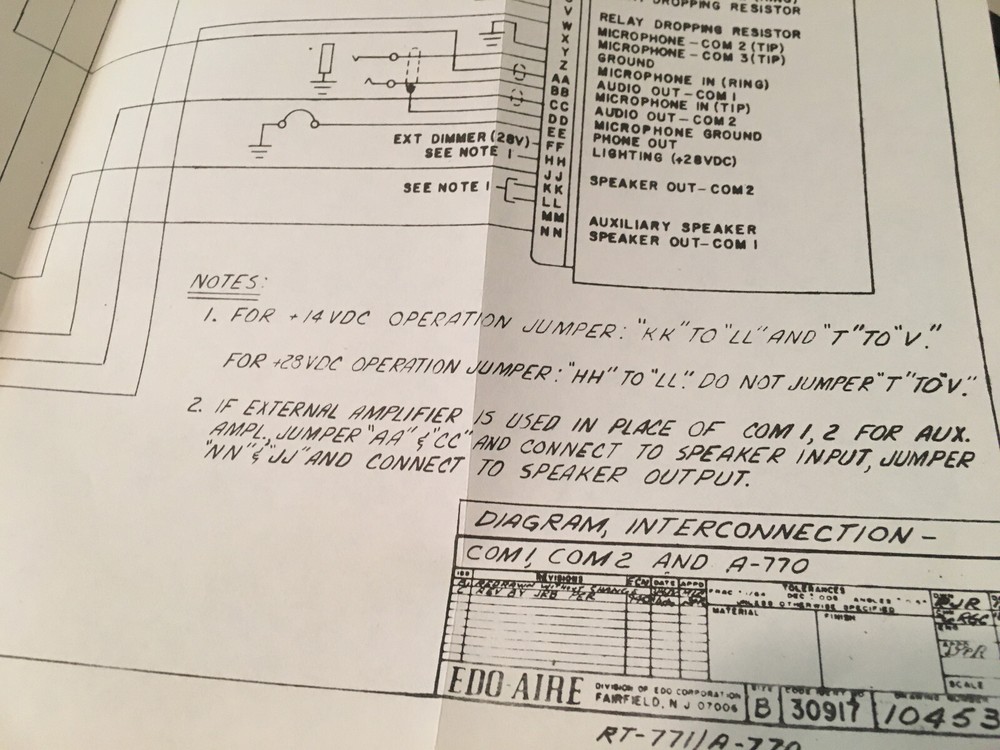 DROPPING RESISTOR
V
W
X
Y
Z
AA
BB
CC
DD
EE
FF
HH
JJ
KK
LL
MM
NN
RELAY DROPPING RESISTOR
MICROPHONE - COM 2 (TIP)
MICROPHONE - COM 3 (TIP)
GROUND
MICROPHONE IN (RING)
AUDIO OUT - COM 1
MICROPHONE IN (TIP)
AUDIO OUT - COM 2
MICROPHONE GROUND
PHONE OUT
LIGHTING (+28VDC)
SPEAKER OUT - COM 2
AUXILIARY SPEAKER
SPEAKER OUT - COM 1
EXT DIMMER (28V)
SEE NOTE 1
SEE NOTE 1
NOTES:
1. FOR +14VDC OPERATION JUMPER: "KK" TO "LL" AND "T" TO "V."
FOR +28VDC OPERATION JUMPER: "HH" TO "LL." DO NOT JUMPER "T" TO "V."
2. IF EXTERNAL AMPLIFIER IS USED IN PLACE OF COM 1, 2 FOR AUX.
AMPL, JUMPER "AA" & "CC" AND CONNECT TO SPEAKER INPUT, JUMPER
"NN" & "JJ" AND CONNECT TO SPEAKER OUTPUT.
DIAGRAM, INTERCONNECTION -
COM 1, COM 2 AND A-770
REVISIONS ECN DATE APPD
REDRAWN WITHOUT CHANGE
C REV BY JRB PER
TOLERANCES
UNLESS OTHERWISE SPECIFIED
MATERIAL FINISH
SCALE
EDO-AIRE
DIVISION OF EDO CORPORATION
FAIRFIELD, N J 07006
SIZE CODE IDENT NO DRAWING NUMBER
B 30917 10453
RT-771/A-770